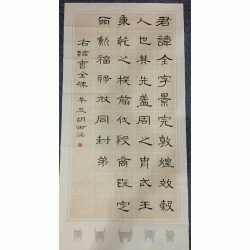 君諱全字景完敦煌效穀
人也其先蓋周之胄武王
秉乾之機剪伐殷商既定
爾勳福祿攸同封弟
右臨曹全碑 辛丑